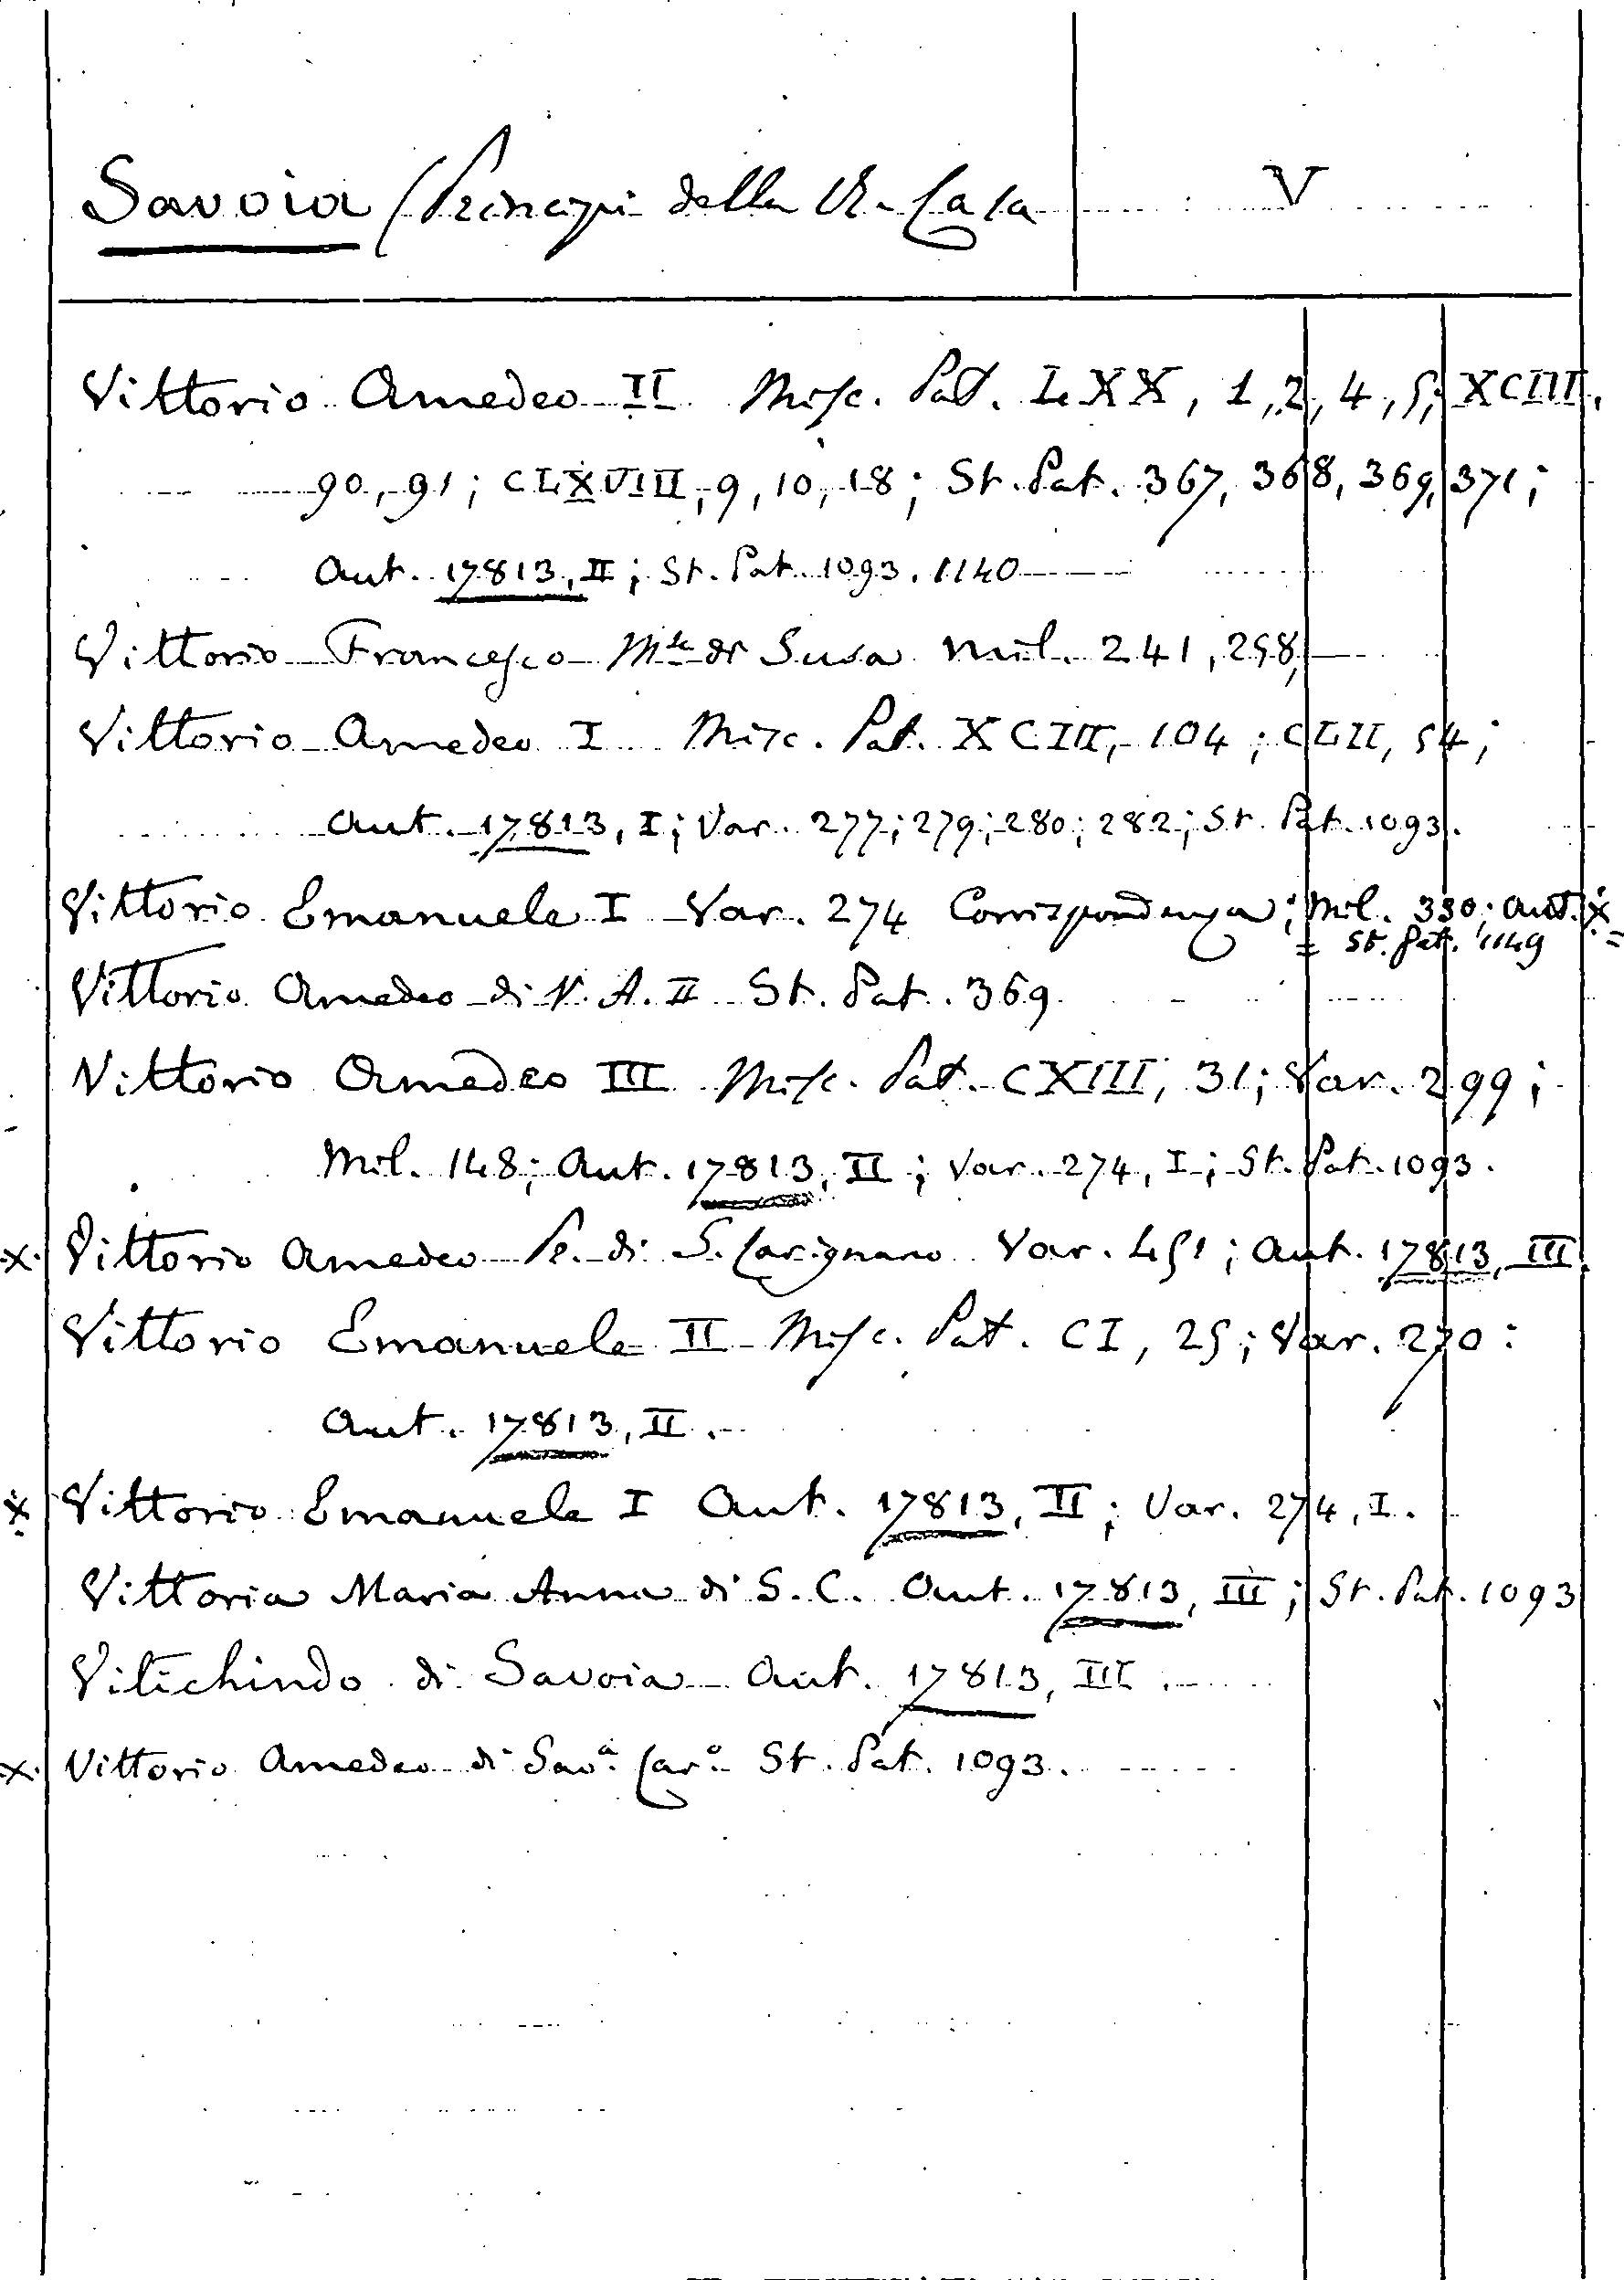 Savoia (Principi della R. Casa
V
Vittorio Amedeo II Misc. Pat. LXX, 1, 2, 4, 5; XCIII,
90, 91; CLXVIII, 9, 10, 18; St. Pat. 367, 368, 369, 371;
Aut. 17813, II; St. Pat. 1093. 1140
Vittorio Francesco Mse di Susa Mil. 241, 258,
Vittorio Amedeo I Misc. Pat. XCIII, 104; CLII, 54;
Aut. 17813, I; Var. 277; 279; 280; 282; St. Pat. 1093.
Vittorio Emanuele I Var. 274 Corrispondenza; Mil. 330; Aut. x
= St. Pat. 1149 =
Vittorio Amedeo di V. A. II St. Pat. 369
Vittorio Amedeo III Misc. Pat. CXIII, 31; Var. 299;
Mil. 148; Aut. 17813, II; Var. 274, I; St. Pat. 1093.
x Vittorio Amedeo Pe. di S. Carignano Var. 451; Aut. 17813, III.
Vittorio Emanuele II Misc. Pat. CI, 25; Var. 270:
Aut. 17813, II.
x Vittorio Emanuele I Aut. 17813, II; Var. 274, I.
Vittoria Maria Anna di S. C. Aut. 17813, III; St. Pat. 1093
Vitichindo di Savoia Aut. 17813, III.
x Vittorio Amedeo di Sav.a Car.o St. Pat. 1093.